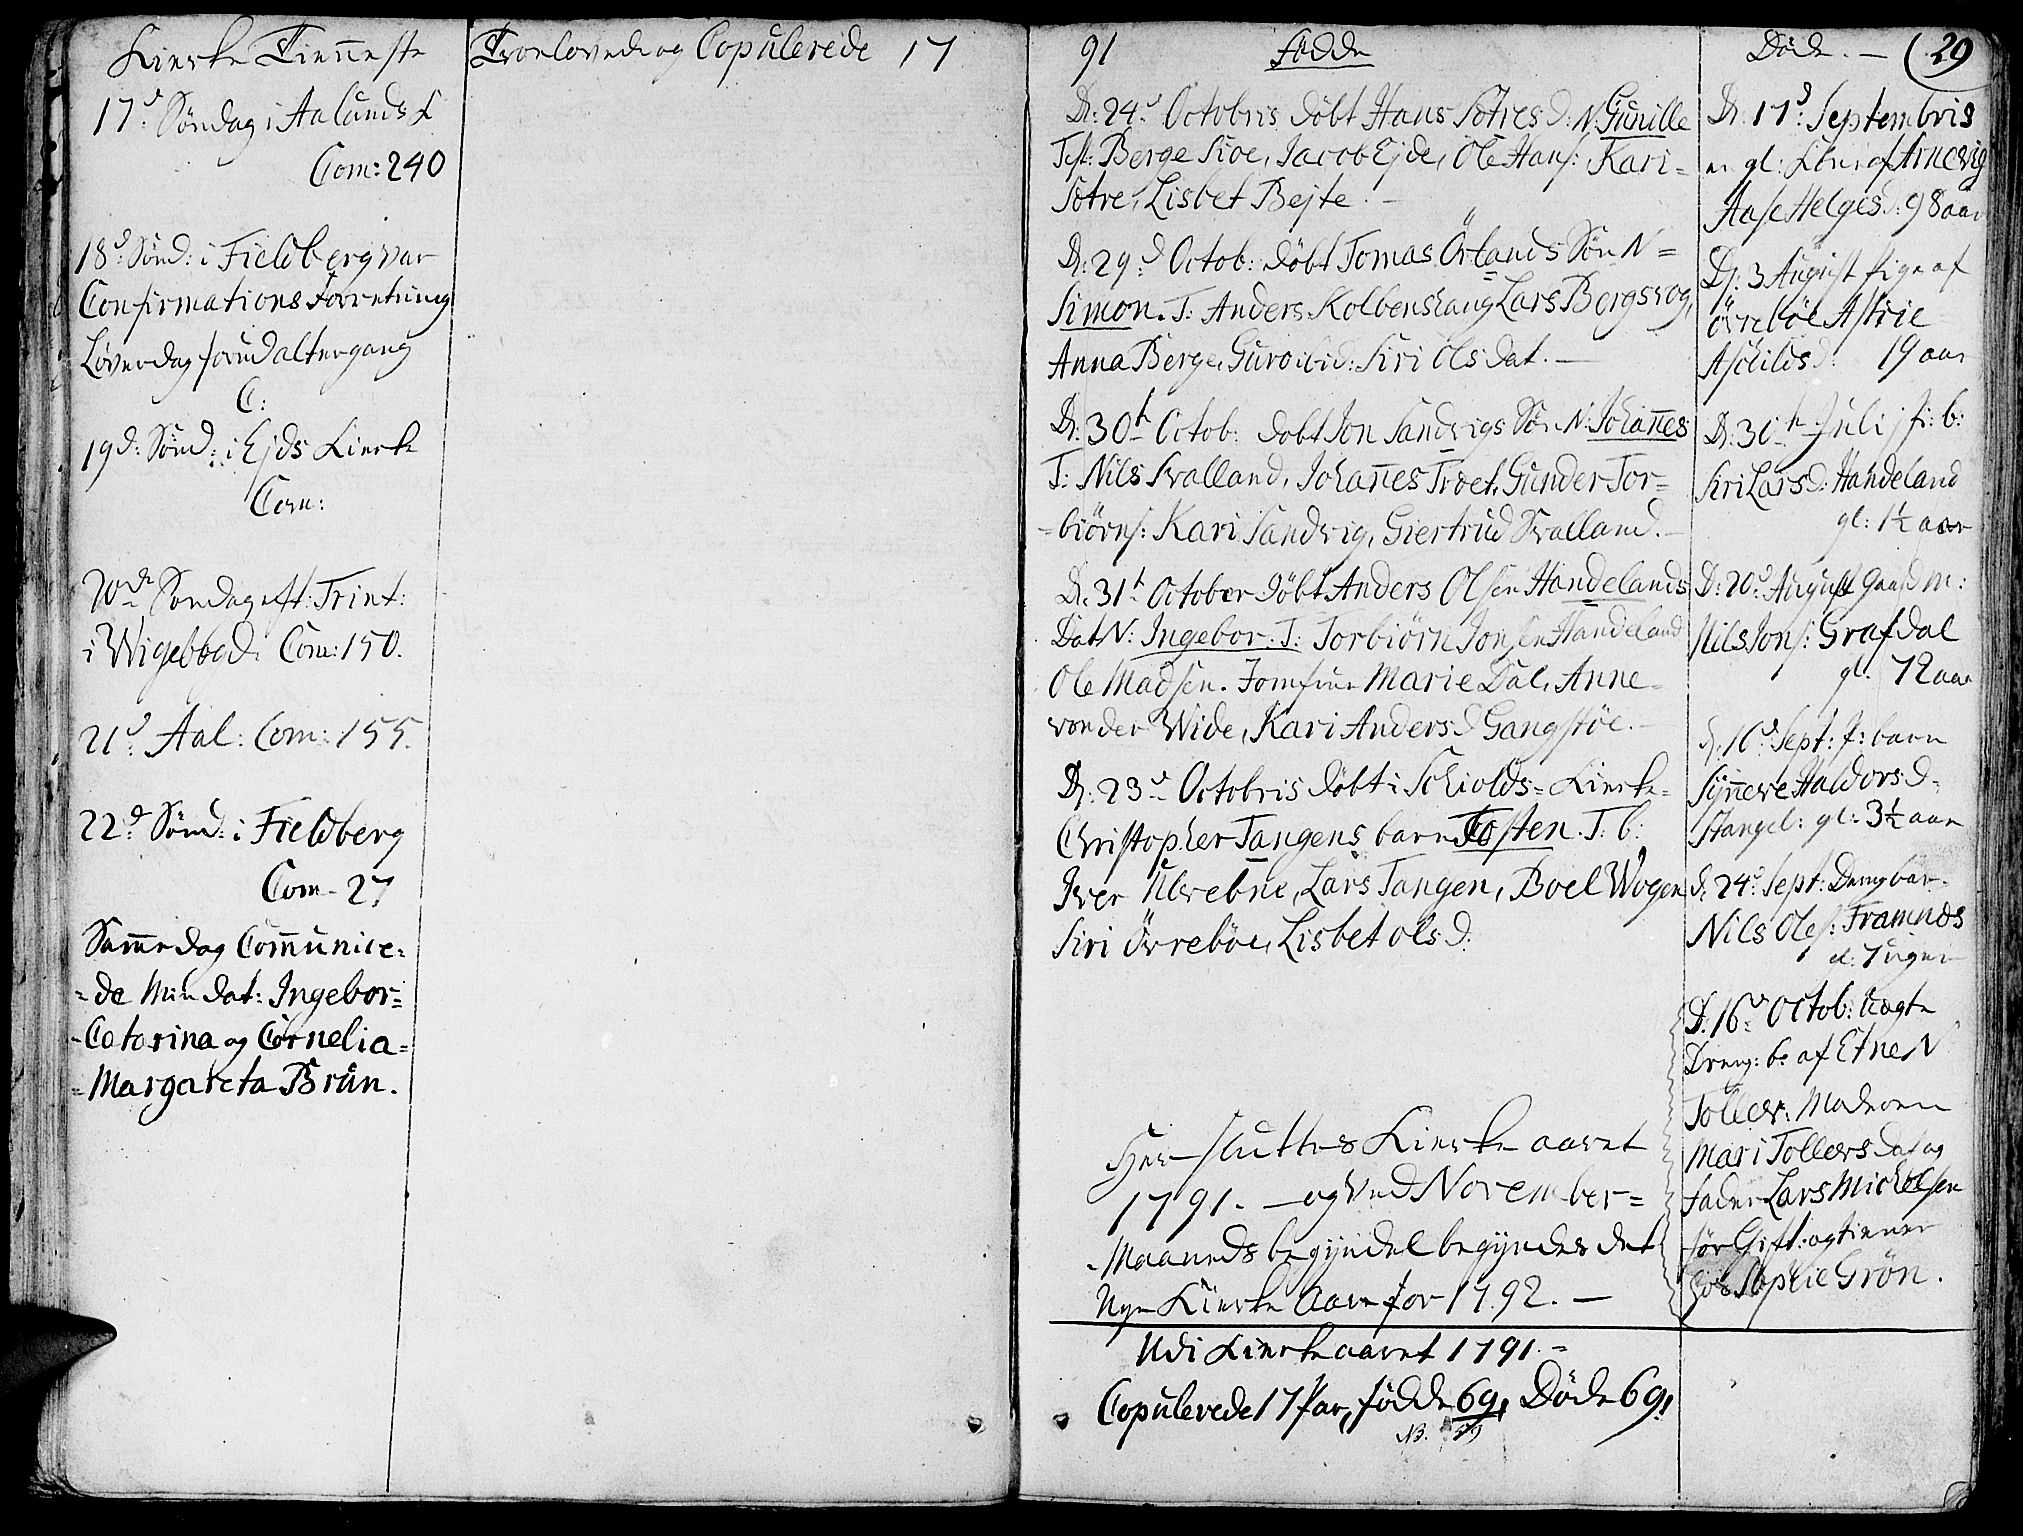 Kierke Tienneste
17d Søndag i Aalunds K
Com: 240
18d: Sønd: i Fieldberg var
Confirmations Forretning
Løverdag forud altergang
C:
19d: Sønd: i Ejds Kierke
Com:
20de Søndag eft: Trint:
i Wigebögd: Com: 150.
21d: Aal: Com: 155.
22d Sønd: i Fieldberg
Com - 27
Samme dag Communice=
=de Min dat: Ingebor=
-Catarina og Cornelia=
=Margareta Brün.
Troelovede og Copulerede 17
91 Födde
D: 24d Octobris döbt Hans Sötres d: N. Gunille
Test: Berge Sioe, Jacob Ejde, Ole Hans: Kari=
Sotre, Lisbet Bejte. -
D: 29d Octob: döbt Tomas Örlands Søn N=
Simon. T: Anders Kolbenshaug Lars Bergsvog,
Anna Berge, Guro ibid: Siri Olsdat. -
D: 30t Octob: döbt Jon Sandvigs Søn N: Johannes
T: Nils Svalland, Johannes Troet, Gunder Tor=
-biörns: Kari Sandvig, Giertrud Svalland. -
D: 31t October döbt Anders Olsen Handelands
Dat N: Ingebor. T: Torbiörn Jonsen Handeland
Ole Madsen. Jomfrue Marie Dal, Anne
von der Wide, Kari Anders d Gangstöe. -
D: 23d Octobris döbt i Schiolds= Kierke=
Christopher Tangens barn Tosten. T: b:
Iver Ulvebne, Lars Tangen, Boel Wogen
Siri Övreböe, Lisbet ols d:
Her sluttes Kierke aaret
1791. - og ved November=
-Maaneds begyndel begyndes det
Nye Kierke Aar for 1792. -
Udi Kierke aaret 1791. =
Copulerede 17 Par, födde 69, Döde 69!
NB. 59
Döde. - 29
D: 17d: Septembris
en gl: Kone af Arnevig
Aase Helgesd: 98 aar
D: 3 August Pige af
övreböe Astrie
Askildsd: 19 aar
D: 30te Julij p: b:
Siri Lars d: Handeland
gl: 1½ aar
D: 20d: August gaardm:
Nils Jons: Grafdal
gl. 72 aar
D: 16d Sept: P: barn
Synneve Haldors d=
Stangel: gl: 3½ aar
D: 24d: Sept: Dreng bar-
Nils Oles: Framnæs
gl: 7 uger
D. 16d Octob: uægte
Dreng: b: af Etne N
Tollev: Moderen
Mari Tollevs dat og
Fader Lars Michelsen
før Gift: og tiener
hos Sophie Grön.